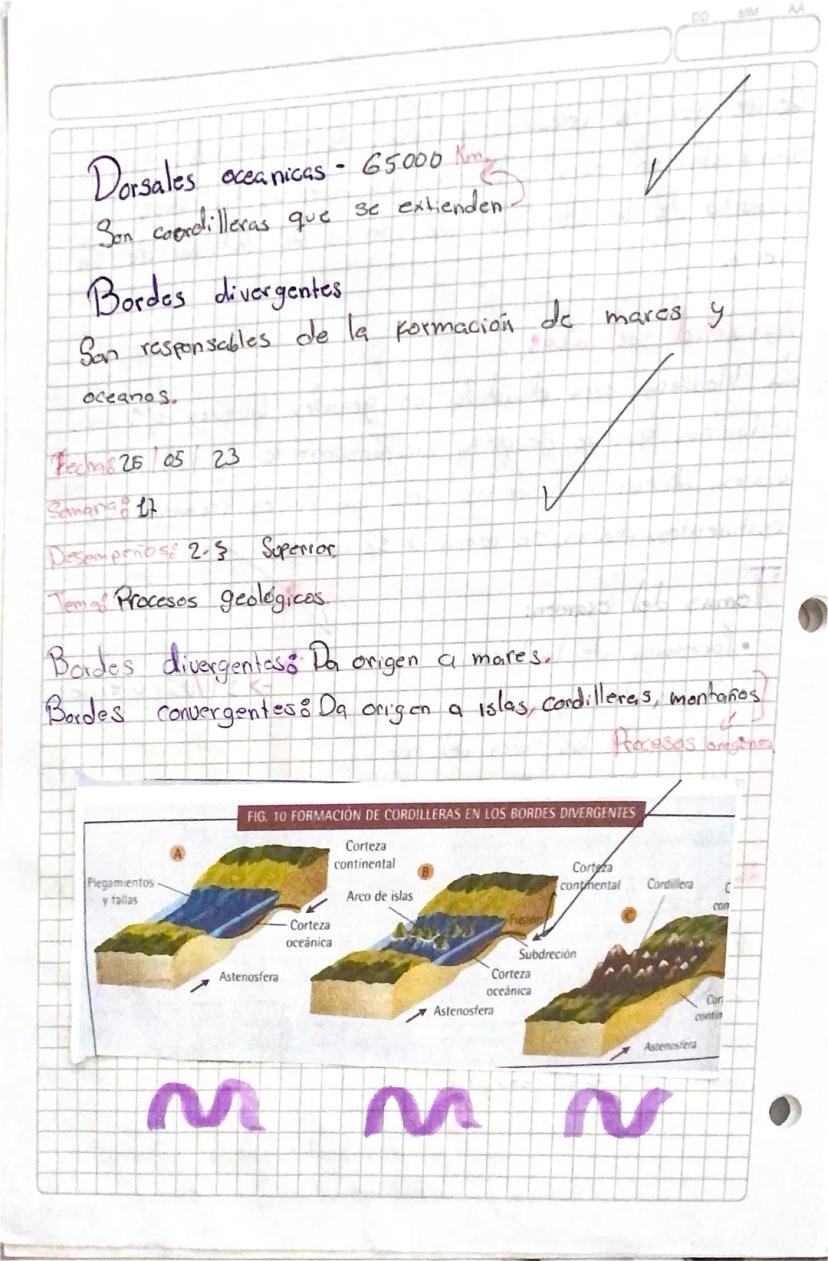 DD MM AA
Dorsales oceanicas - 65000 Km
Son coordilleras que se extienden
Bordes divergentes
Son responsables de la formación de mares y
oceanos.
Fecha: 26 / 05 / 23
Semana: 17
Desempeños: 2.3 Superior
Tema: Procesos geológicos
Bordes divergentes: Da origen a mares.
Bordes convergentes: Da origen a islas, cordilleras, montañas
Procesos
FIG. 10 FORMACIÓN DE CORDILLERAS EN LOS BORDES DIVERGENTES
A
Corteza
continental
Plegamientos
y fallas
Corteza
oceánica
Astenosfera
B
Corteza
continental
Arco de islas
Fusión
Subdreción
Corteza
oceánica
Astenosfera
C
Cordillera
C
con
Cor
contin
Astenosfera